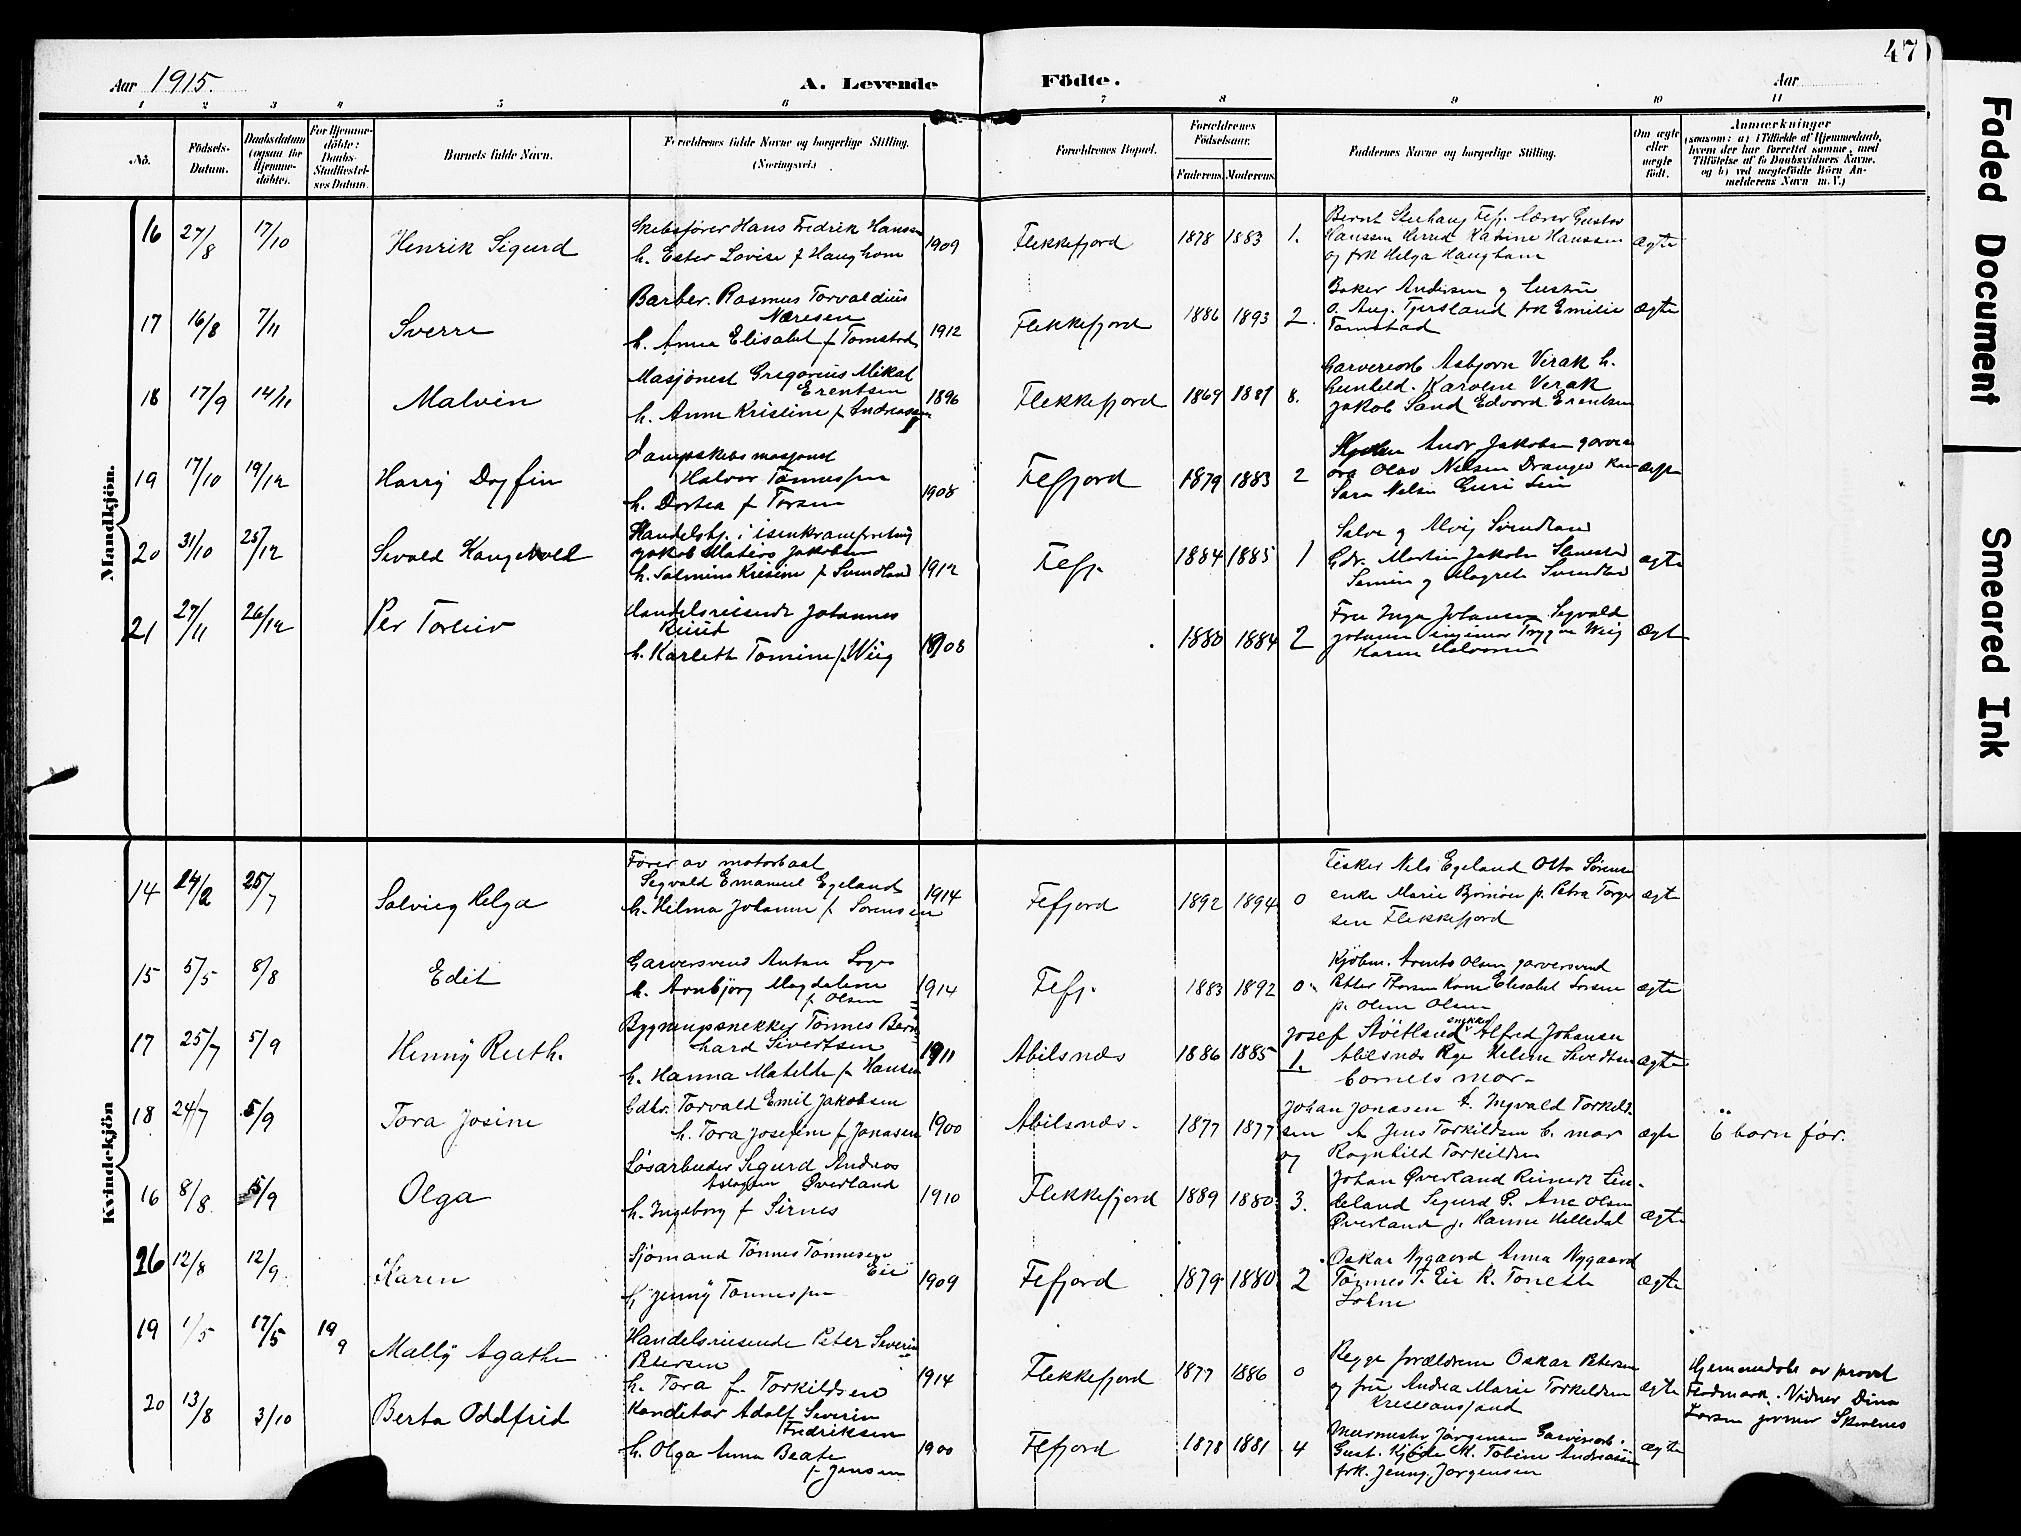 Aar 1915.
A. Levende
Födte.
Aar
47
1 2 3 4 5 6 7 8 9 10 11
No.
Födsels-
Datum.
Daabsdatum
(ogsaa for
Hjemme-
döbte).
For Hjemme-
döbte:
Daabs-
Stadfæstel-
ses Datum.
Barnets fulde Navn.
Forældrenes fulde Navne og borgerlige Stilling.
(Næringsvei.)
Forældrenes Bopæl.
Forældrenes
Födselsaar.
Faderens. Moderens.
Faddernes Navne og borgerlige Stilling.
Om ægte
eller
uægte
födt.
Anmærkninger
(saasom: a) i Tilfælde af Hjemmedaab,
hvem der har forrettet samme, med
Tilföielse af to Daabsvidners Navne,
og b) ved uægtefödte Börn An-
melderens Navn m. V.)
Mandkjön.
16 27/8 17/10 Henrik Sigurd
Skibsfører Hans Fredrik Hanssen
h. Ester Lovise f Haughom 1909
Flekkefjord 1878 1883 1.
Bernt Stenhaug Fefj. lærer Gustav
Hanssen Herred Katrine Hanssen
og frk Helga Haugham
ægte
17 16/8 7/11 Sverre
Barber. Rasmus Torvaldius
Næresen
h. Anna Elisabet f Tomstad 1912
Flekkefjord 1886 1893 2.
Baker Andersen og hustru
O. Aug. Tjersland frk Emilie
Tomstad
ægte
18 17/9 14/11 Malvin
Masjönest Gregorius Mikal
Erentsen
h. Anne Kristine f Andreassen 1896
Flekkefjord 1869 1881 8.
Garvereiarb Asbjorn Verak h.
Gunhild. Karoline Verak
Jakob Sand Edvard Erentsen
19 17/10 19/12 Harry Dagfin
Dampskibsmasjonist
Halvor Tønnessen
h. Dortea f Torsen 1908
Fefjord 1879 1883 2
Andr Jakobsen garveri
arb Olav Nelsen Dranger
Sara Nelsen Guri
ægte
20 31/10 25/12 Sevald Kongevold
Handelsbj. i isenkramforretning
Jakob Matias Jakobsen
h. Salmine Kristine f Svindland 1912
Fefj. 1884 1885 1
Salve og Alvig Svindland
Gdr. Martin Jakobsen
og Magrete Svindland
ægte
21 27/11 26/12 Per Torleiv
Handelsreisende Johannes
h. Karleth Tomine f. Wiig 1908
1880 1884 2
Fru Inga Johansen Sigvald
Johansen ingeniør Trygve Wiig
Karen Halvorsen
ægte
Kvindekjön
14 24/2 25/7 Solvieg Helga
Fører av motorbaat
Sigvald Emanuel Egeland
h. Hilma Johanne f. Sørensen 1914
Fefjord 1892 1894 0
Fisker Nils Egeland Otto Sørensen
enke Marie Bjørnøen p. Petra Torger
sen Flekkefjord
ægte
15 5/5 8/8 Edit
Garversvend Anton Loga
h. Arnbjörg Magdalene
f. Olsen 1914
Fefj. 1883 1892 0
Kjöbm. Arents Olsen garversvend
Peter Thorsen Kone Elisabet Torsen
p. Oline Olsen
ægte
17 25/7 5/9 Henny Ruth.
Bygningssnekker Tönnes Bern
hard Sivertsen
h. Hanna Matelde f. Hansen 1911
Abilsnæs 1886 1885 1.
Josef Stöitland snekker Alfred Johansen
Abilsnæs Pge Helene Sivertsen
barnets mor -
ægte
18 24/7 5/9 Tora Josine
Gdbr. Torvald Emil Jakobsen
h. Tora Josefine f Jonasen 1900
Abilsnæs. 1877 1877
Johan Jonasen t. Ingvald Torkild
sen A Jens Torkildsen b. mor
og Ragnhild Torkildsen
ægte
6 barn før.
16 8/8 5/9 Olga
Løsarbeider Sigurd Andreas
Aslagsen Øverland
h. Ingeborg f Sirnes 1910
Flekkefjord 1889 1880 3.
Johan Øverland Reinert Lin-
deland Sigurd P. Ane Olsen
Øverland p. Hanne Helledal
ægte
16 12/8 12/9 Karen
Sjömand Tönnes Tönnesen
Eie
h Jenny Tönnessen 1909
Fefjord 1879 1880 2
Oskar Nygaard Anna Nygaard
Tönnes T. Eie K. Tonette
Lohne
ægte
19 1/5 17/5 19/9 Mally Agathe
Handelsreisende Peter Severin
Petersen
h. Tora f. Torkildsen 1914
Flekkefjord 1877 1886 0
Begge forældrene Oskar Petersen
og frue Andrea Marie Torkildsen
Kristiansand
ægte
Hjemmedøbt av provst
Flodmark. Vidner Dina
Larsen jormor
20 13/8 3/10 Berta Oddfrid
Konditor Adolf Severin
Fredriksen
h. Olga Anna Beate
f Jansen 1900
Fefjord 1878 1881 4
Murmester Jörgensen Garveriarb.
Gust. Kjöde M. Tobine Andreasen
frk. Jenny Jorgensen
ægte
Faded Document
Smeared Ink